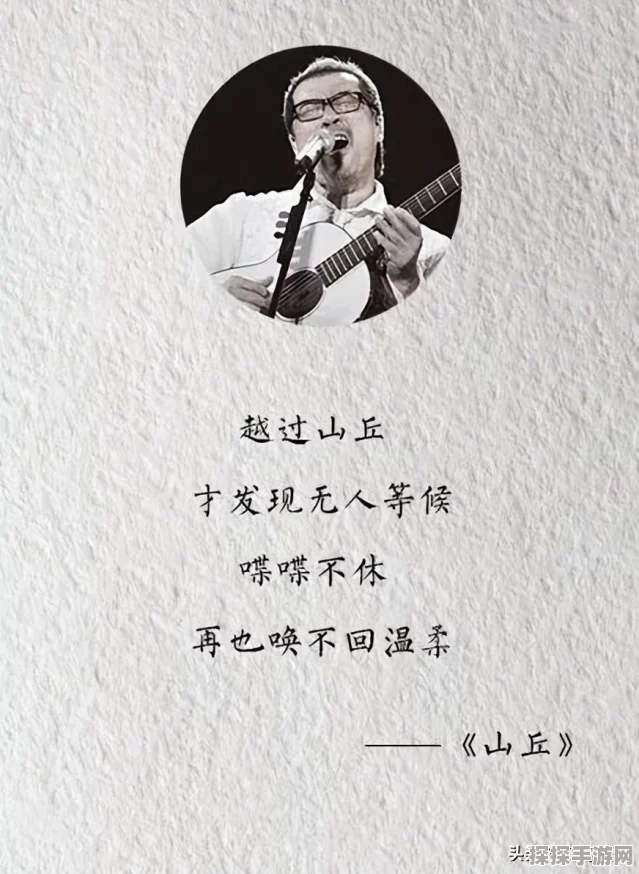 越过山丘
才发现无人等候
喋喋不休
再也唤不回温柔
——《山丘》
探探手游网